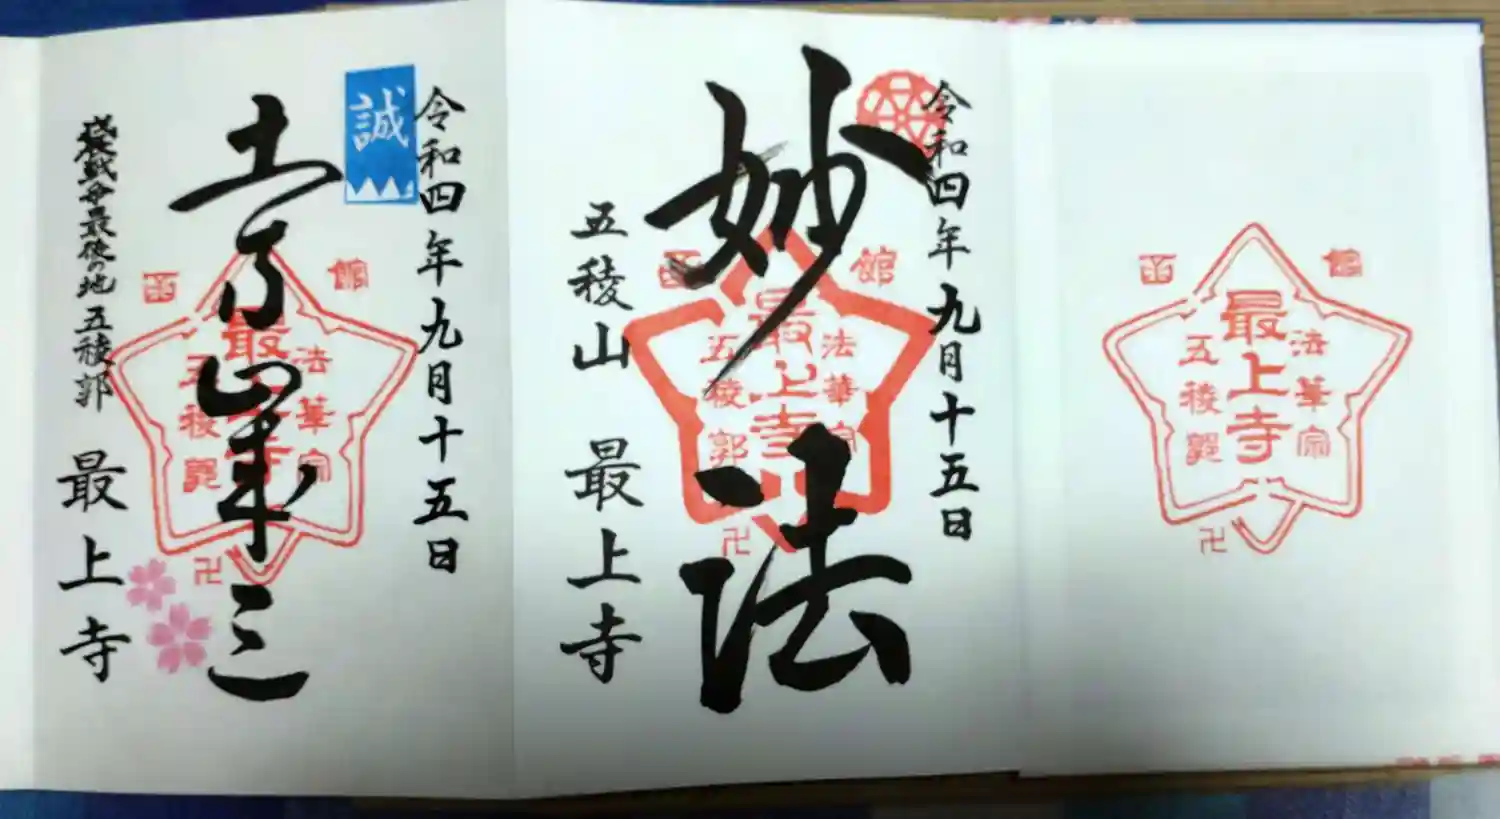 函館
法華宗
最上寺
五稜郭
卍
令和四年九月十五日
妙法
函館
法華宗
最上寺
五稜郭
卍
五稜山
最上寺
令和四年九月十五日
誠
土方歳三
函館
法華宗
最上寺
五稜郭
卍
戦争最後の地 五稜郭
最上寺